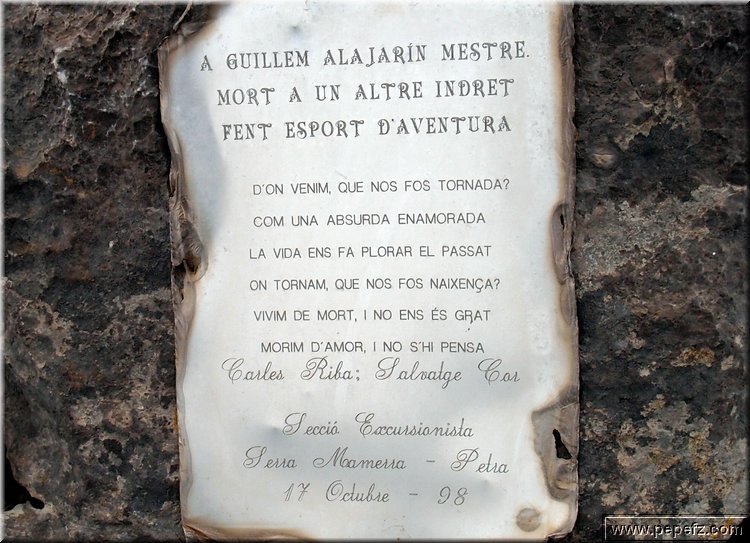 A GUILLEM ALAJARÍN MESTRE.
MORT A UN ALTRE INDRET
FENT ESPORT D'AVENTURA
D'ON VENIM, QUE NOS FOS TORNADA?
COM UNA ABSURDA ENAMORADA
LA VIDA ENS FA PLORAR EL PASSAT
ON TORNAM, QUE NOS FOS NAIXENÇA?
VIVIM DE MORT, I NO ENS ÉS GRAT
MORIM D'AMOR, I NO S'HI PENSA
Carles Riba; Salvatge Cor
Secció Excursionista
Serra Mamerra - Petra
17 Octubre - 98
www.pepefz.com